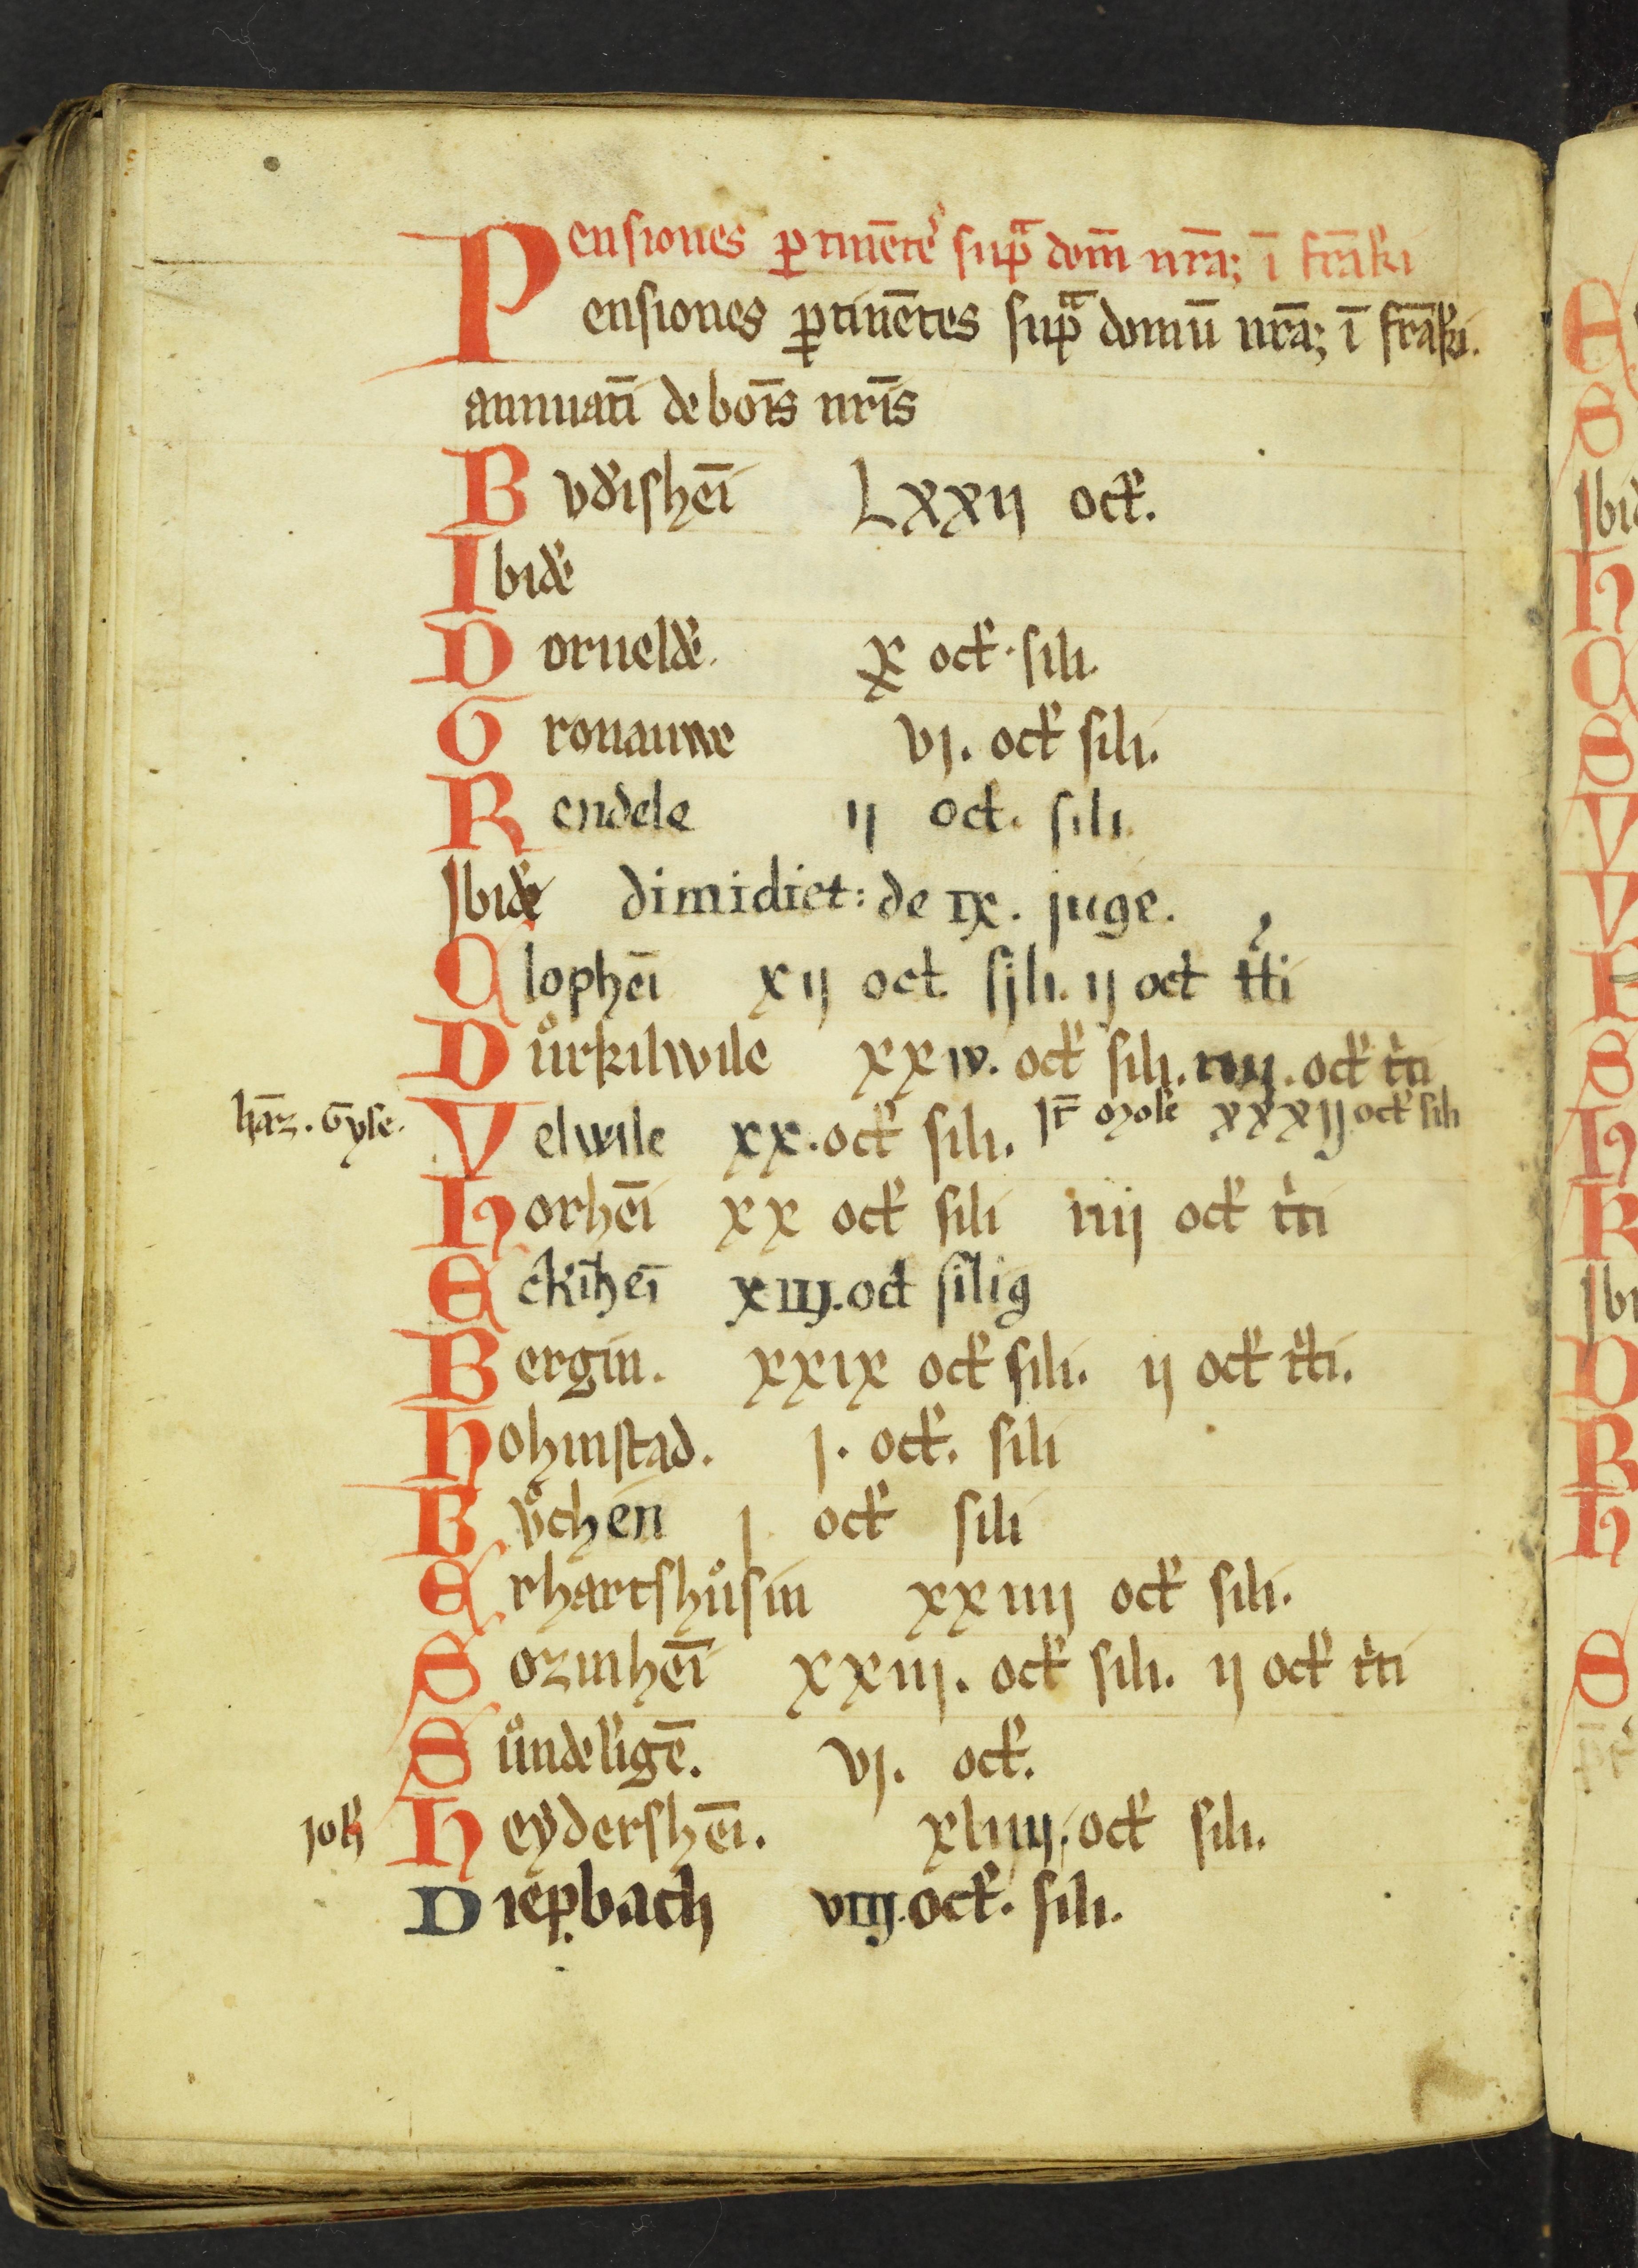 Pensiones ꝑtinētes̉ supᷓ dom̄ nrāꝫ ī frāk̄
ensiones ꝑtinētes supᷓ domū nrāꝫ ī frāk̄.
annuatī de bonis nrīs
Bvd̾ishēī LXXIJ oct̾.
Ibid̾e
Dorueld̾e. X oct̾. sili.
Gronauwe VJ. oct̾ sili.
Rendele IJ oct. sili.
Ibid̾e dimidiet: de IX. juge.
Alophēi XIJ oct. sili. IJ oct tͥti
Důrkilwile XXIV. oct̾ sili. IIIJ. oct̾ tͥti
hāz. Gyse.
Velwile XX. oct̾ sili. Jt̄ XXXIJ oct̾ sili
Horhēi XX oct̾ sili IIIJ oct̾ tͥti
Eckīhēi XIIJ. oct silig
Bergin. XXIX oct̾ sili. IJ oct̾ tͥti.
Hohinstad. J. oct̾. sili
Bv̊chen J oct̾ sili
Erhartshůsin XXIIIJ oct̾ sili.
Sozinhēi XXIIJ. oct̾ sili. IJ oct̾ tͥti
Sůndeligē. VJ. oct̾.
Joh̄
Heydershēi. XLIIIJ. oct̾ sili.
Diepbach VIIJ. oct̾. sili.